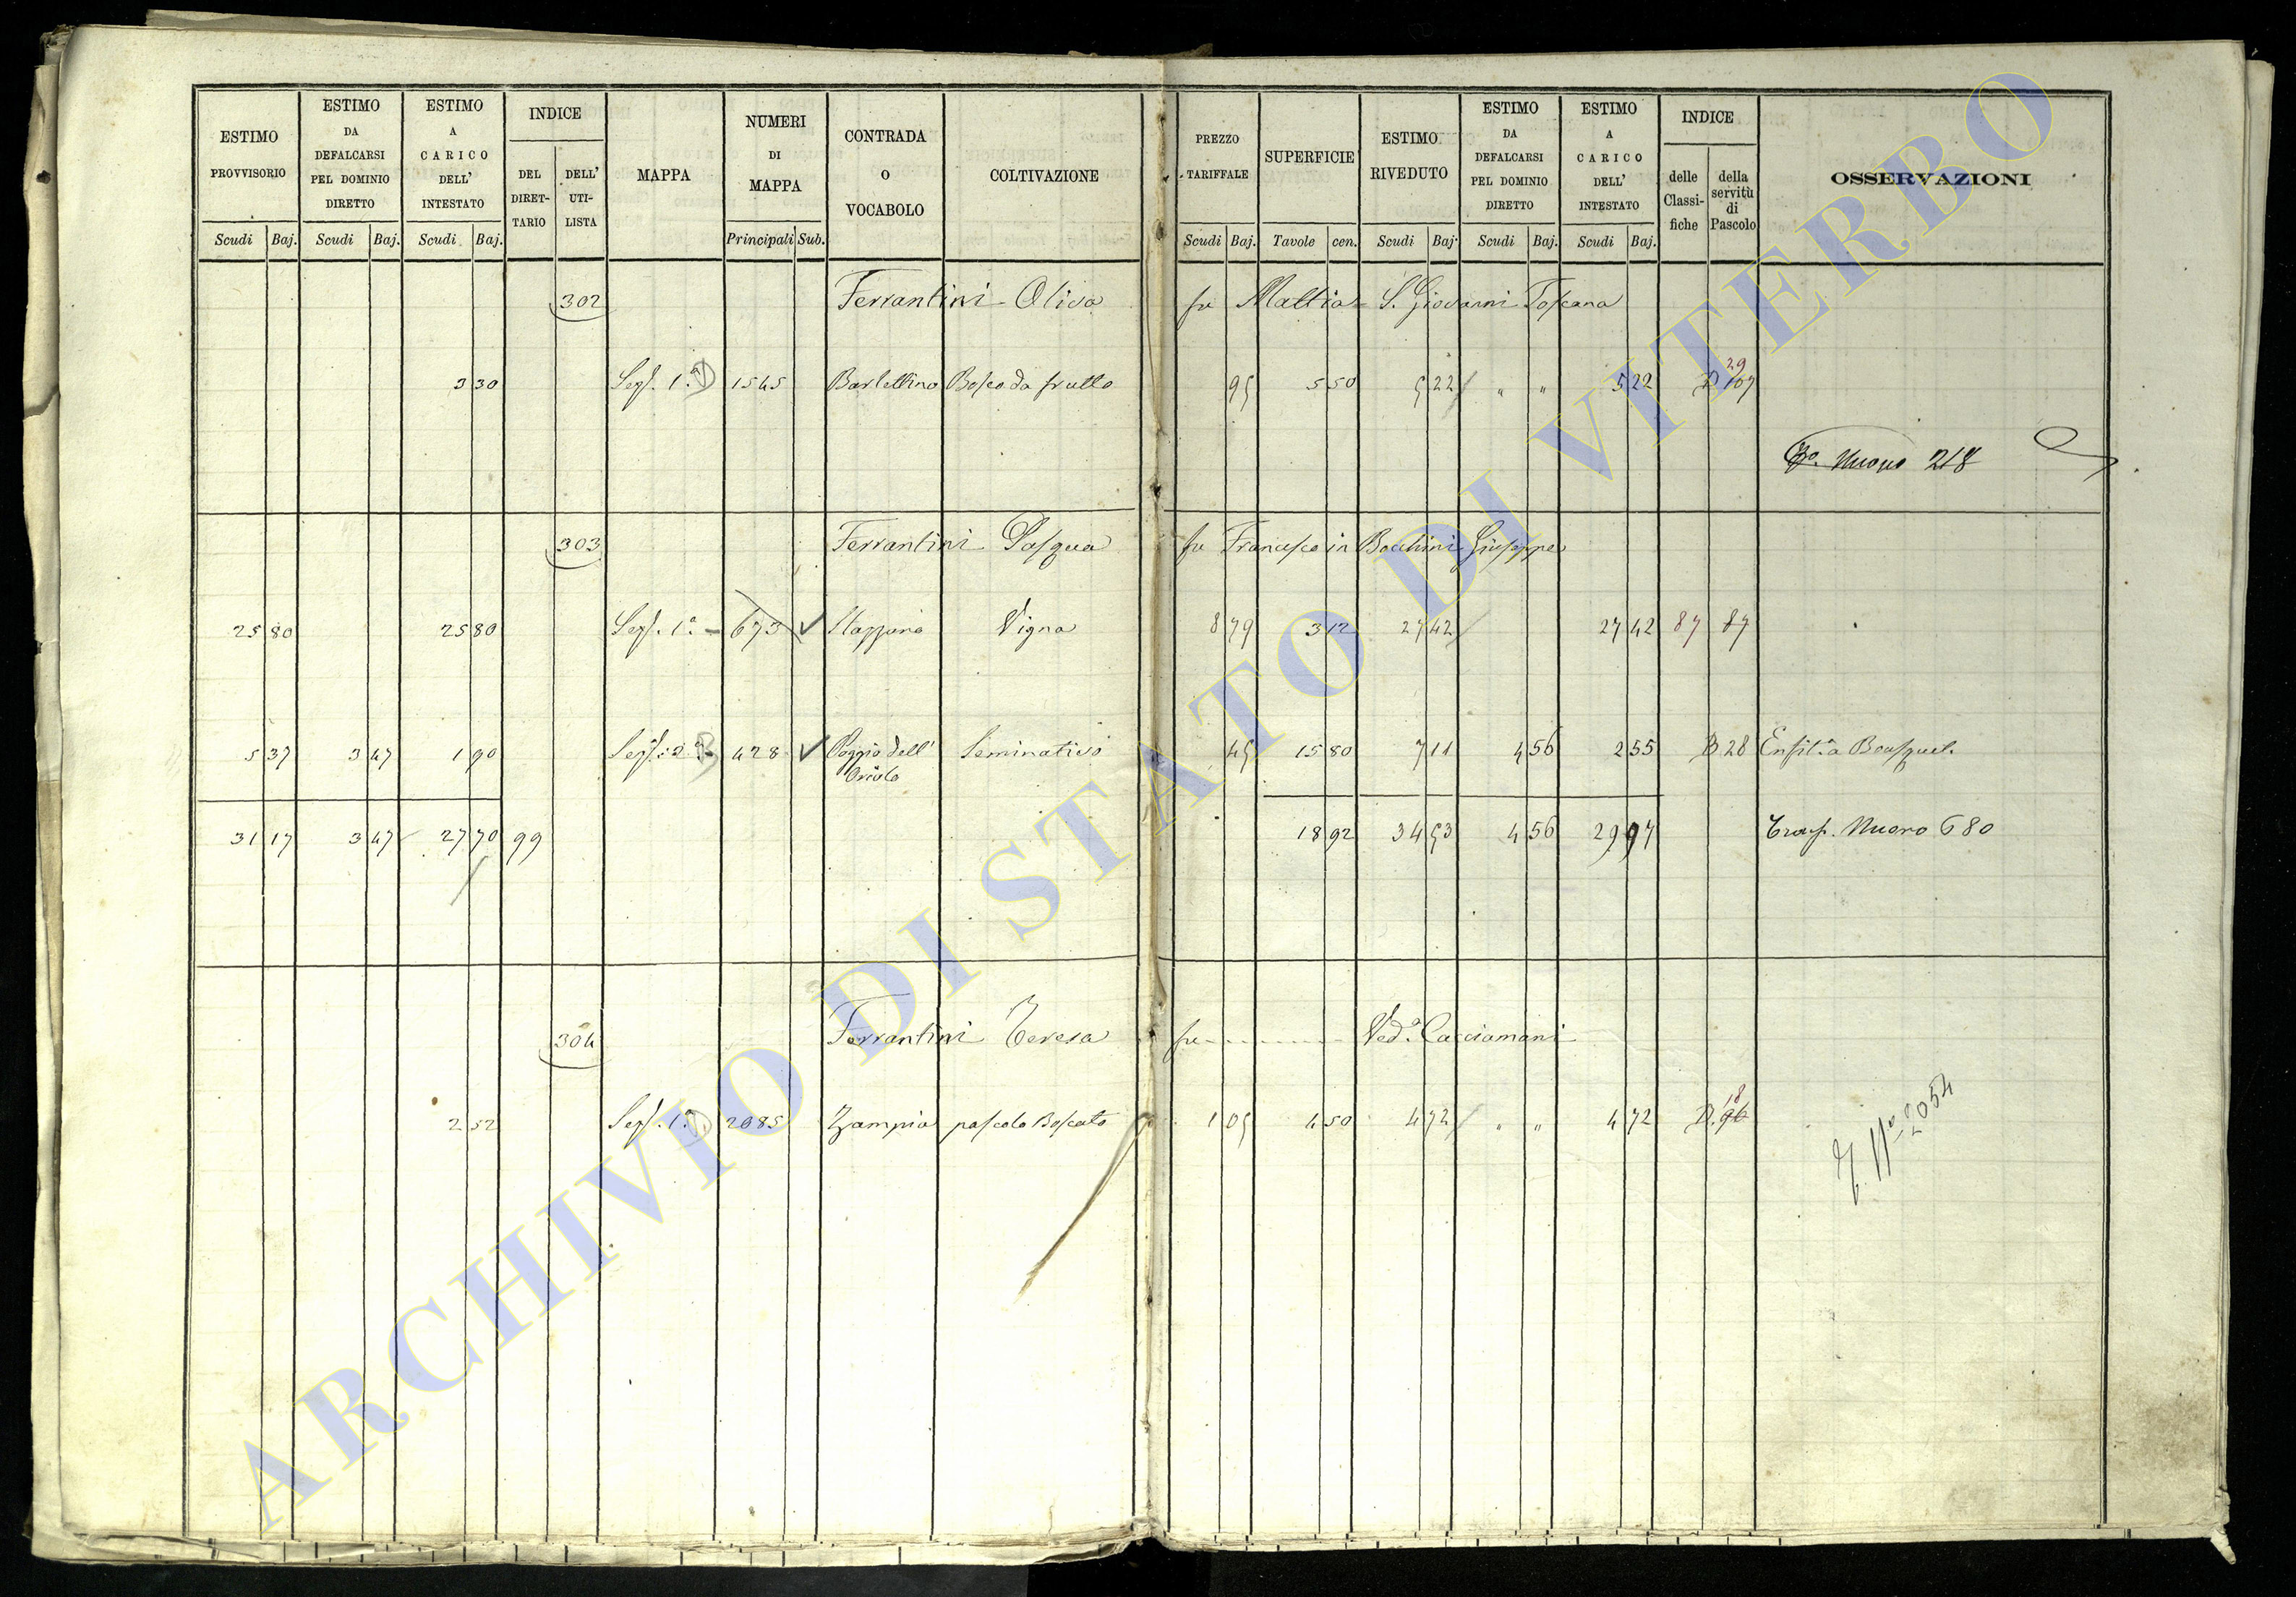 ESTIMO PROVVISORIO
ESTIMO DA DEFALCARSI PEL DOMINIO DIRETTO
ESTIMO A CARICO DELL' INTESTATO
INDICE
DEL DIRET-TARIO
DELL' UTI-LISTA
MAPPA
NUMERI DI MAPPA
CONTRADA O VOCABOLO
COLTIVAZIONE
PREZZO TARIFFALE
SUPERFICIE
ESTIMO RIVEDUTO
ESTIMO DA DEFALCARSI PEL DOMINIO DIRETTO
ESTIMO A CARICO DELL' INTESTATO
INDICE
delle Classi-fiche
della servitù di Pascolo
OSSERVAZIONI
Scudi Baj. Scudi Baj. Scudi Baj. Principali Sub. Scudi Baj. Tavole cen. Scudi Baj. Scudi Baj. Scudi Baj.
302 Ferrantini Oliva fu Mattia S. Giovanni Toscana
3 30 Sez. 1.a 1545 Bartellino Bosco da frutto 95 5 50 5 22 " " 5 22 D 107 29
No. Nuovo 218
303 Ferrantini Pasqua fu Francesco in Bocchini Giuseppe
25 80 25 80 Sez. 1.a 673 Mazzano Vigna 8 79 3 12 27 42 27 42 87 87
5 37 3 47 1 90 Sez. 2.a B 428 Poggio dell' Seminativo 45 15 80 7 11 4 56 2 55 B 28
31 17 3 47 27 70 99 18 92 34 53 4 56 29 97 Trasp. Nuovo 680
304 Ferrantini Teresa fu Ved.a Cacciamani
2 52 Sez. 1.a 2085 Zampia pascolo Boscato 1 05 4 50 4 72 " " 4 72 D. 96 18
T. No. 2054
ARCHIVIO DI STATO DI VITERBO